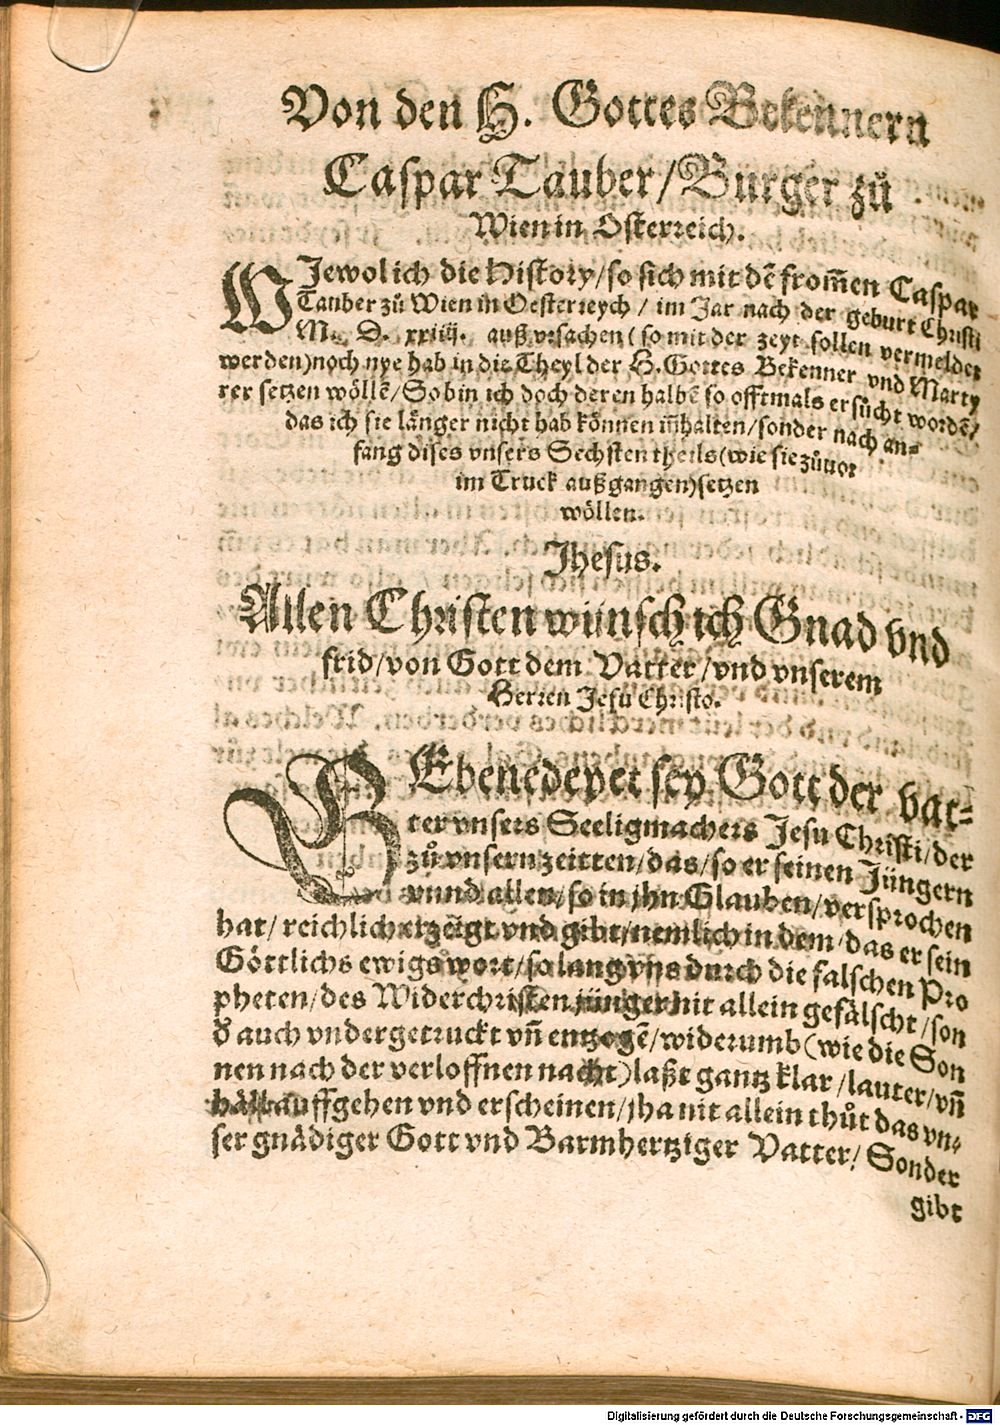 Von den H. Gottes Bekennern
Caspar Tauber/Burger zů
Wien in Osterreich.
WJewol ich die History/so sich mit dē from̄en Caspar
Tauber zů Wien in Oesterreych / im Jar nach der geburt Christi
M. D. xxiiij. auß vrsachen (so mit der zeyt sollen vermeldet
werden)noch nye hab in die Theyl der H.Gottes Bekenner vnd Marty
rer setzen wöllē/So bin ich doch deren halbē so offtmals ersůcht wordē/
das ich sie länger nicht hab können in̄halten/sonder nach an⸗
fang dises vnsers Sechsten theils(wie sie zůuor
im Truck außgangen)setzen
wöllen.
Jhesus.
Allen Christen wünsch ich Gnad vnd
frid/von Gott dem Vatter/vnd vnserem
Herren Jesu Christo.
GEbenedeyet sey Gott der vat⸗
ter vnsers Seeligmachers Jesu Christi/der
zů vnsern zeitten/das/so er seinen Jüngern
vnnd allen/so in jhn Glauben/versprochen
hat/ reichlich erzeigt vnd gibt/nemlich in dem/das er sein
Göttlichs ewigs wort/so lang vns durch die falschen Pro
pheten/des Widerchristen jünger nit allein gefälscht/son
d̄ auch vndergetruckt vn̄ entzogē/widerumb(wie die Son
nen nach der verloffnen nacht)laßt gantz klar/lauter/vn̄
häll auffgehen vnd erscheinen/jha nit allein thůt das vn⸗
ser gnädiger Gott vnd Barmhertziger Vatter/ Sonder
gibt
Digitalisierung gefördert durch die Deutsche Forschungsgemeinschaft - DFG